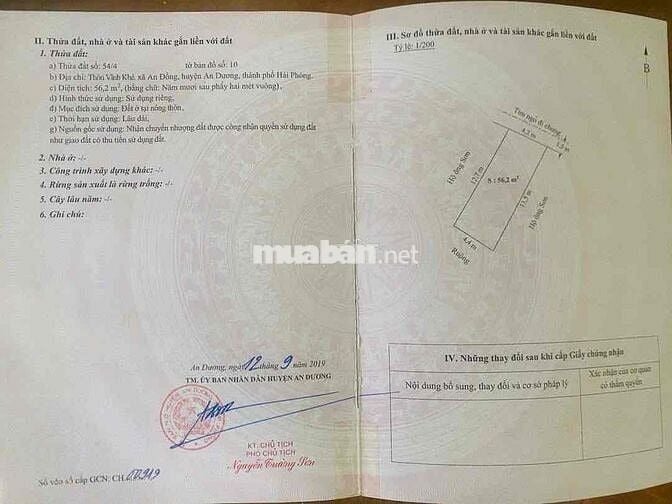 II. Thửa đất, nhà ở và tài sản khác gắn liền với đất
1. Thửa đất:
a) Thửa đất số: 54/4 tờ bản đồ số: 10
b) Địa chỉ: Thôn Vĩnh Khê, xã An Đồng, huyện An Dương, thành phố Hải Phòng.
c) Diện tích: 56,2 m², (bằng chữ: Năm mươi sáu phẩy hai mét vuông),
d) Hình thức sử dụng: Sử dụng riêng,
đ) Mục đích sử dụng: Đất ở tại nông thôn,
e) Thời hạn sử dụng: Lâu dài,
g) Nguồn gốc sử dụng: Nhận chuyển nhượng đất được công nhận quyền sử dụng đất
như giao đất có thu tiền sử dụng đất.
2. Nhà ở: -/-
3. Công trình xây dựng khác: -/-
4. Rừng sản xuất là rừng trồng: -/-
5. Cây lâu năm: -/-
6. Ghi chú:
An Dương, ngày 12 9 năm 2019
TM. ỦY BAN NHÂN DÂN HUYỆN AN DƯƠNG
KT. CHỦ TỊCH
PHÓ CHỦ TỊCH
Nguyễn Trường Sơn
Số vào sổ cấp GCN: CH.
III. Sơ đồ thửa đất, nhà ở và tài sản khác gắn liền với đất
Tỷ lệ: 1/200
B
Tim ngõ đi chung
4,2 m
1,5 m
Hộ ông Sơn
12,7 m
S : 56,2 m²
13,5 m
Hộ ông Sơn
4,4 m
Ruộng
muaban.net
IV. Những thay đổi sau khi cấp Giấy chứng nhận
Nội dung bổ sung, thay đổi và cơ sở pháp lý
Xác nhận của cơ quan
có thẩm quyền